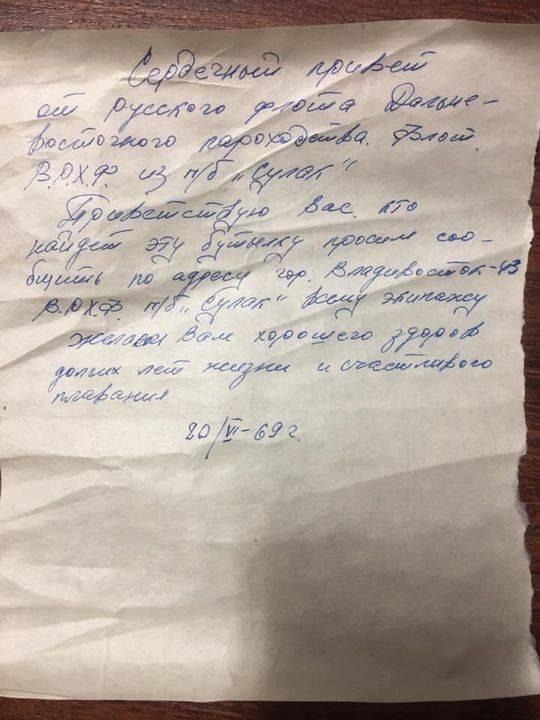 Сердечный привет
от русского флота Дальне-
восточного пароходства. Флот.
В.Р.Х.Ф. из п/б "Сулак"
Приветствую Вас. кто
найдет эту бутылку просим соо-
бщить по адресу гор. Владивосток-43
В.Р.Х.Ф. п/б "Сулак" всему экипажу
желаем Вам хорошего здоров
долгих лет жизни и счастливого
плавания
20/VI-69 г.